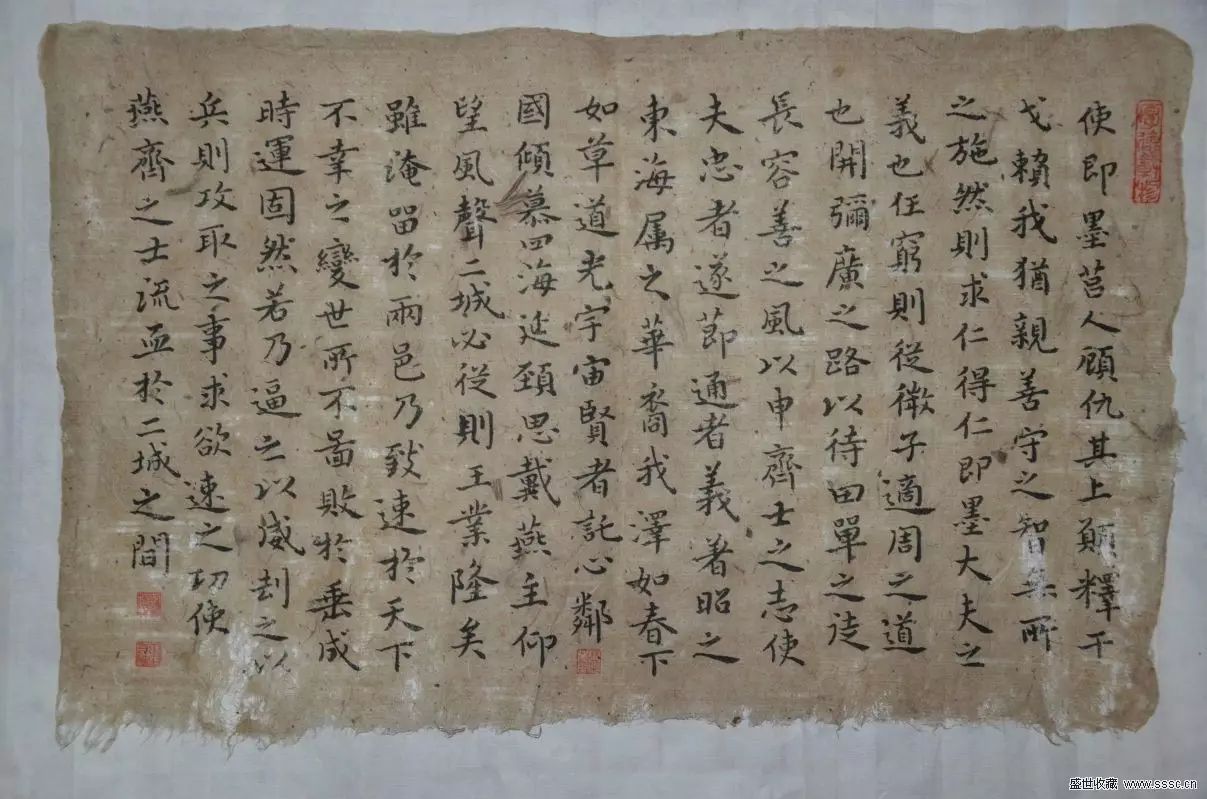 使即墨莒人顧仇其上願釋干
戈賴我猶親善守之智無所
之施然則求仁得仁即墨大夫之
義也任窮則從微子適周之道
也開彌廣之路以待田單之徒
長容善之風以申齊士之志使
夫忠者遂節通者義著昭之
東海属之華裔我澤如春下
如草道光宇宙賢者託心鄰
國傾慕四海延頸思戴燕主仰
望風聲二城必從則王業隆矣
雖淹留於兩邑乃致速於天下
不幸之變世所不啚敗於垂成
時運固然若乃逼之以威刦之以
兵則攻取之事求欲速之功使
燕齊之士流血於二城之間
盛世收藏 www.sssc.cn